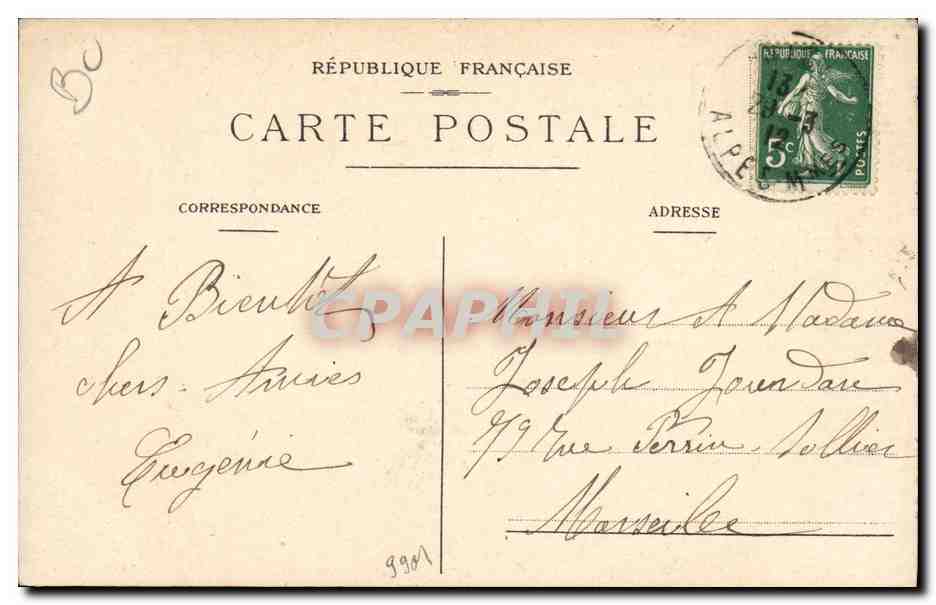 BC
RÉPUBLIQUE FRANÇAISE
CARTE POSTALE
RÉPUBLIQUE FRANÇAISE
5c
POSTES
13
29-3
12
ALPES MMES
CORRESPONDANCE
ADRESSE
A Bientôt
chers Amies
Eugénie
Monsieur et Madame
Joseph Jourdan
79 Rue Perrin Sollier
Marseille
CPAPHIL
9901